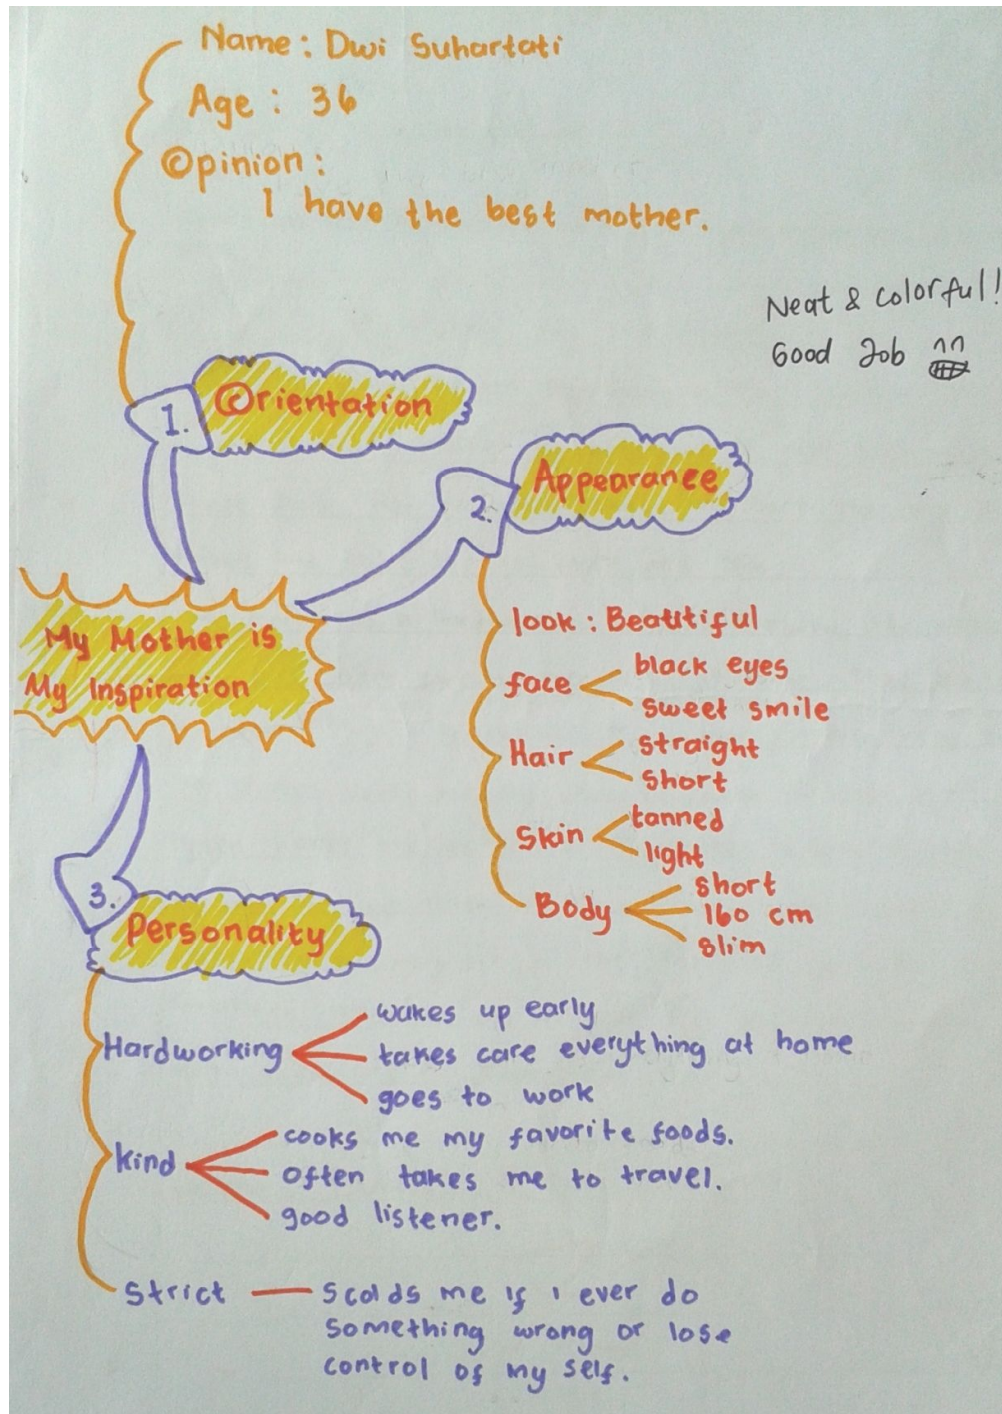 Name : Dwi Suhartati
Age : 36
Opinion :
I have the best mother.
Neat & Colorful!
Good Job
1.
Orientation
2.
Appearance
My Mother is
My Inspiration
look : Beautiful
face
black eyes
sweet smile
Hair
straight
short
Skin
tanned
light
Body
short
160 cm
slim
3.
Personality
Hardworking
wakes up early
takes care everything at home
goes to work
kind
cooks me my favorite foods.
often takes me to travel.
good listener.
Strict
scolds me if i ever do
something wrong or lose
control of my self.